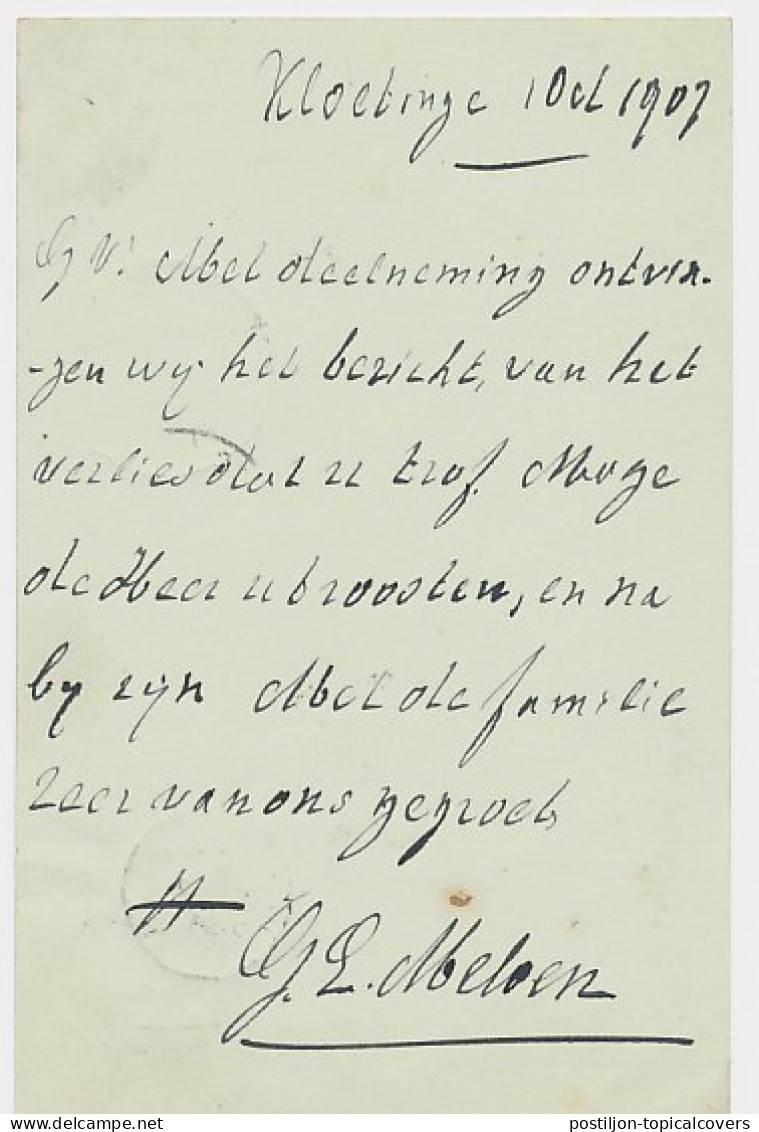 Kloetinge 1 Oct 1907
G V! Met deelneming ontvin-
-gen wij het bericht, van het
verlies dat u trof. Moge
de Heer u troosten, en na
by zijn Met de familie
zeer van ons gegroet
G. L. Melsen
delcampe.net
postiljon-topicalcovers